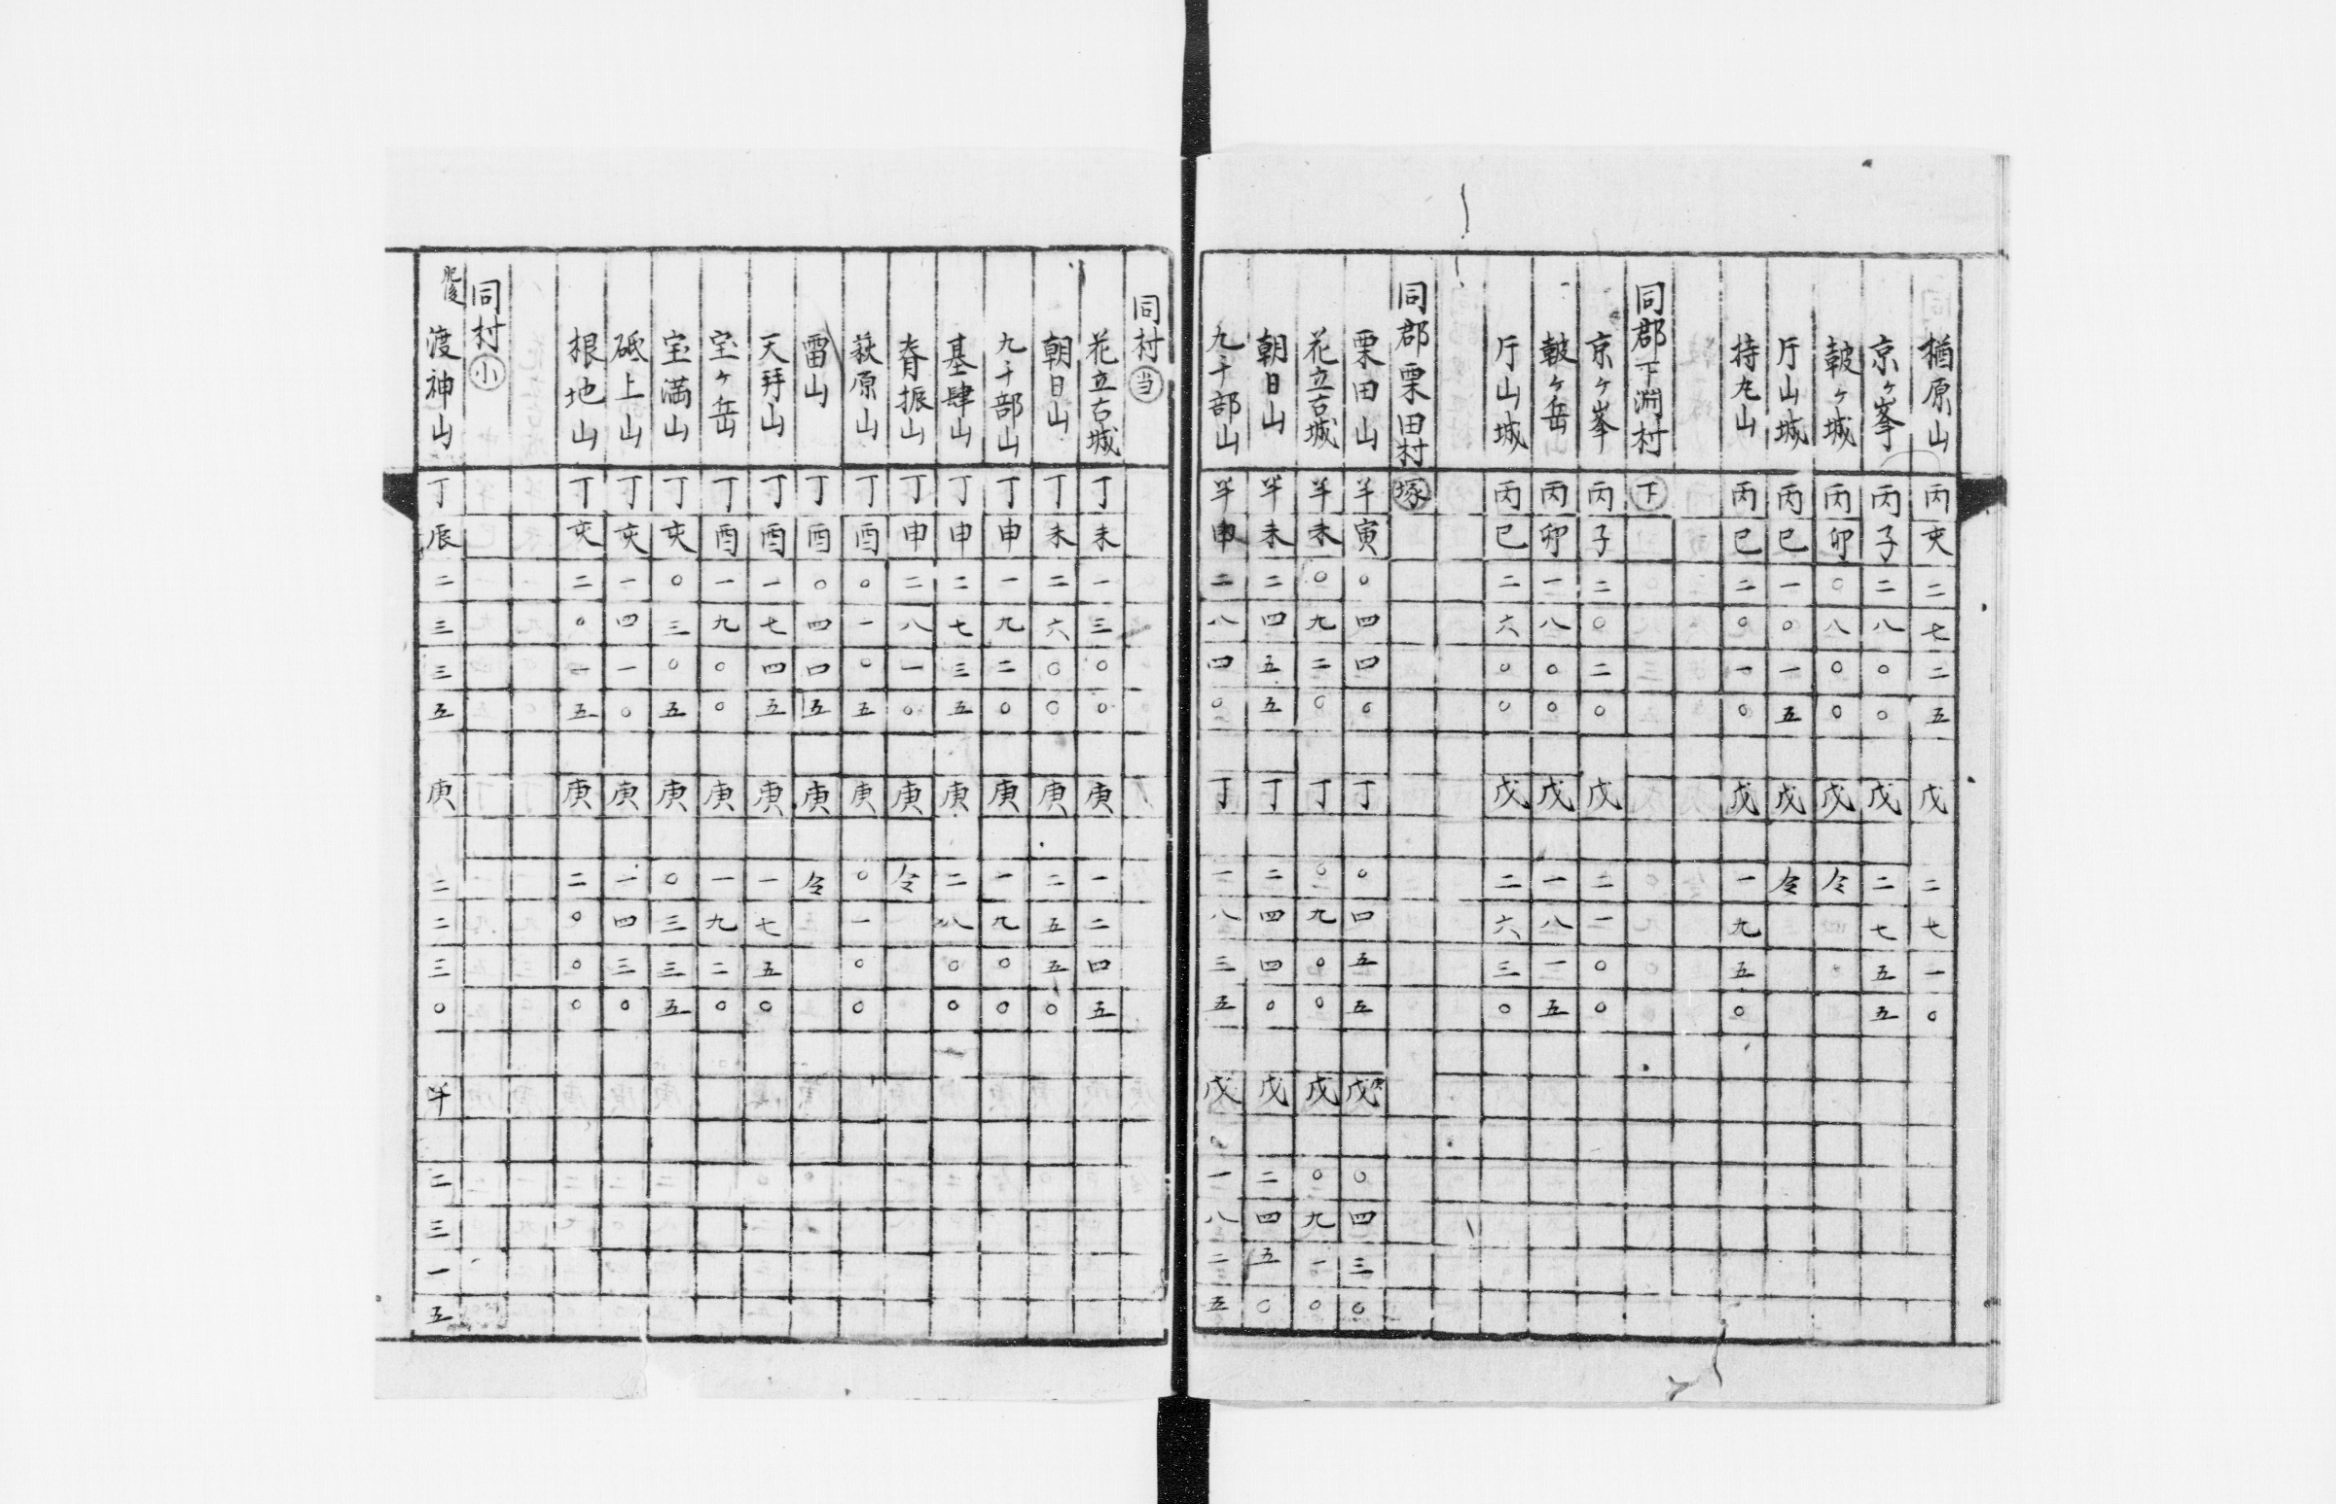 楢原山 丙亥二七二五 戊二七一〇
京ヶ峯 丙子二八〇〇 戊二七五五
皷ヶ城 丙卯〇八〇〇 戊令
庁山城 丙巳一〇一五 戊令
持丸山 丙巳二〇一〇 戊一九五〇
同郡下渕村 下
京ヶ峯 丙子二〇二〇 戊二一〇〇
皷ヶ岳 丙卯一八〇〇 戊一八一五
庁山城 丙巳二六〇〇 戊二六三〇
同郡栗田村 塚
栗田山 半寅〇四四〇 丁〇四五五 戊〇四三〇
花立古城 半未〇九二〇 丁〇九〇〇 戊〇九一〇
朝日山 半未二四五五 丁二四四〇 戊二四五〇
九千部山 半申二八四〇 丁一八三五 戊一八二五
同村 当
花立古城 丁未一三〇〇 庚一二四五
朝日山 丁未二六〇〇 庚二五五〇
九千部山 丁申一九二〇 庚一九〇〇
基肆山 丁申二七三五 庚二八〇〇
脊振山 丁申二八一〇 庚令
萩原山 丁酉〇一〇五 庚〇一〇〇
雷山 丁酉〇四四五 庚令
天拜山 丁酉一七四五 庚一七五〇
宝ヶ岳 丁酉一九〇〇 庚一九二〇
宝満山 丁亥〇三〇五 庚〇三三五
砥上山 丁亥一四一〇 庚一四三〇
根地山 丁亥二〇一五 庚二〇〇〇
同村 小
肥後 渡神山 丁辰二三三五 庚二二三〇 半二三一五